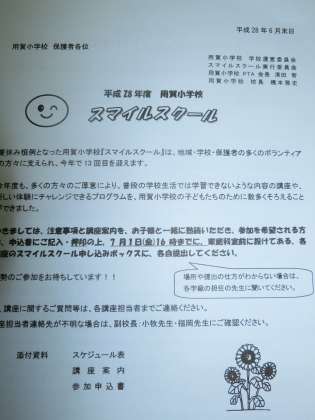 平成28年6月末日
用賀小学校 保護者各位
用賀小学校 学校運営委員会
スマイルスクール実行委員長
用賀小学校PTA会長
用賀小学校 校長
平成28年度 用賀小学校
スマイルスクール
夏休み恒例となった用賀小学校『スマイルスクール』は、地域・学校・保護者の多くのボランティア
の方々に支えられ、今年で13回目を迎えます。
今年度も、多くの方々のご厚意により、普段の学校生活では学習できないような内容の講座や、
新しい体験にチャレンジできるプログラムを、用賀小学校の子どもたちのために数多くそろえるこ
とができました。
つきましては、注意事項と講座案内を、お子様と一緒に熟読いただき、参加を希望される方
は、申込書にご記入・押印の上、7月1日(金)16時までに、家庭科室前に設けてある、各
講座のスマイルスクール申し込みボックスに、各自提出してください。
大勢のご参加をお待ちしています!!
場所や提出の仕方がわからない場合は、
各学級の担任の先生に聞いてください。
講座に関するご質問等は、各講座担当者までご連絡ください。
講座担当者連絡先が不明な場合は、副校長:小牧先生・福岡先生にご確認ください。
添付資料 スケジュール表
講座案内
参加申込書